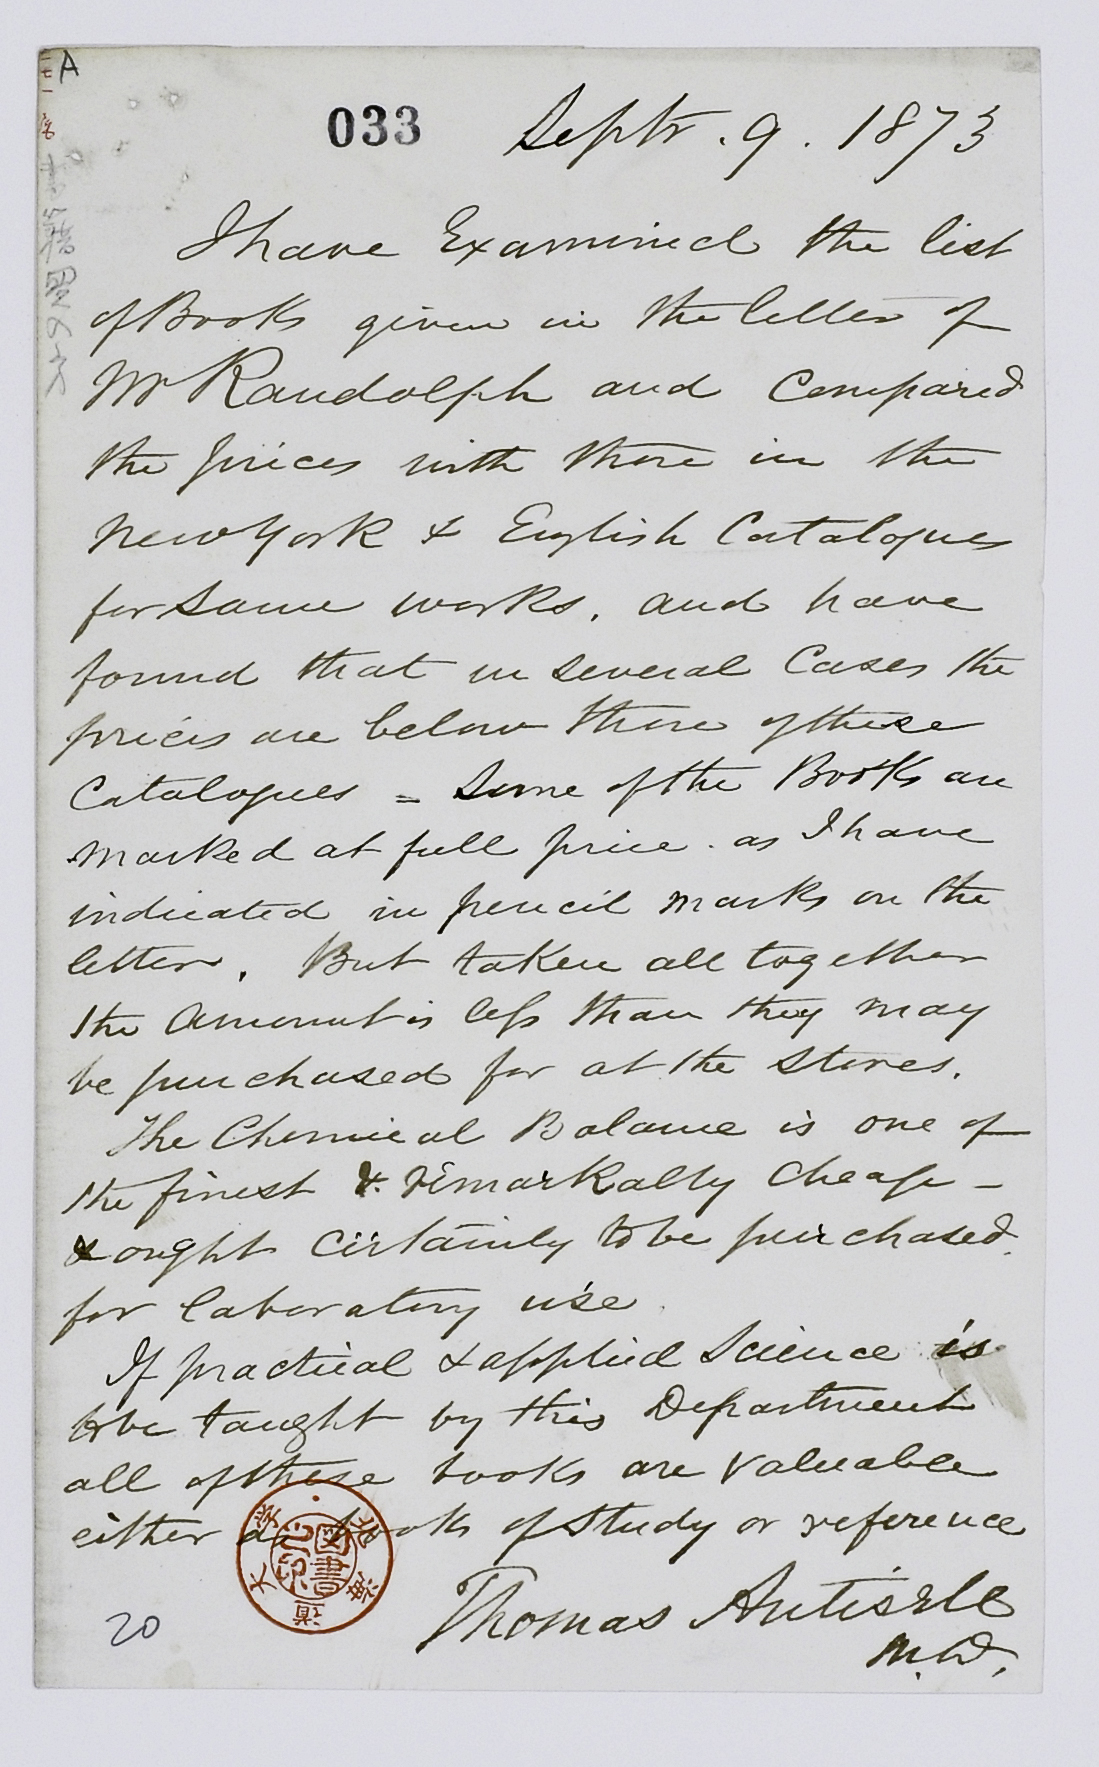 A
033
Septr. 9. 1873
I have Examined the list
of Books given in the letter of
Mr Randolph and Compared
the prices with those in the
New York & English Catalogues
for same works, and have
found that in several Cases the
prices are below those of these
Catalogues = Some of the Books are
marked at full price. as I have
indicated in pencil marks on the
letter. But taken all together
the Amount is less than they may
be purchased for at the Stores.
The Chemical Balance is one of
the finest & remarkably cheap -
& ought certainly to be purchased
for laboratory use.
If practical & applied Science is
to be taught by this Department
all of these books are valuable
either as books of Study or reference
Thomas Antisell
M.D.
北海道大学
図書
20